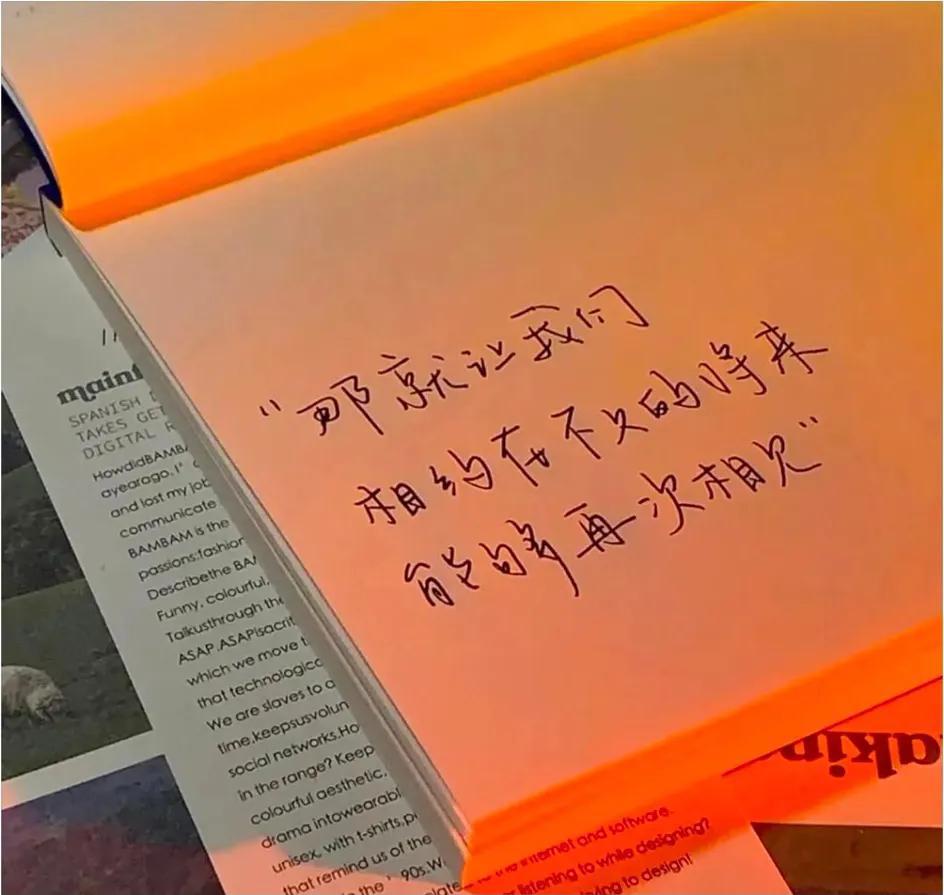 “那就让我们
相约在不久的将来
能够再次相见”
SPANISH
TAKES GET
DIGITAL
HowdidBAMBA
ayearago. I'
and lost my job
communicate
BAMBAM is the
passions:fashion
Describethe BA
Funny, colourful,
Talkusthrough the
ASAP. ASAPisacrit
which we move
that technologica
We are slaves to
time,keepsusvolun
social networks.Ho
in the range? Keep
colourful aesthetic,
drama intowearabl
unisex, with t-shirts,p
that remind us of the
the '90s.W
to the internet and software.
listening to while designing?
to design!
akin